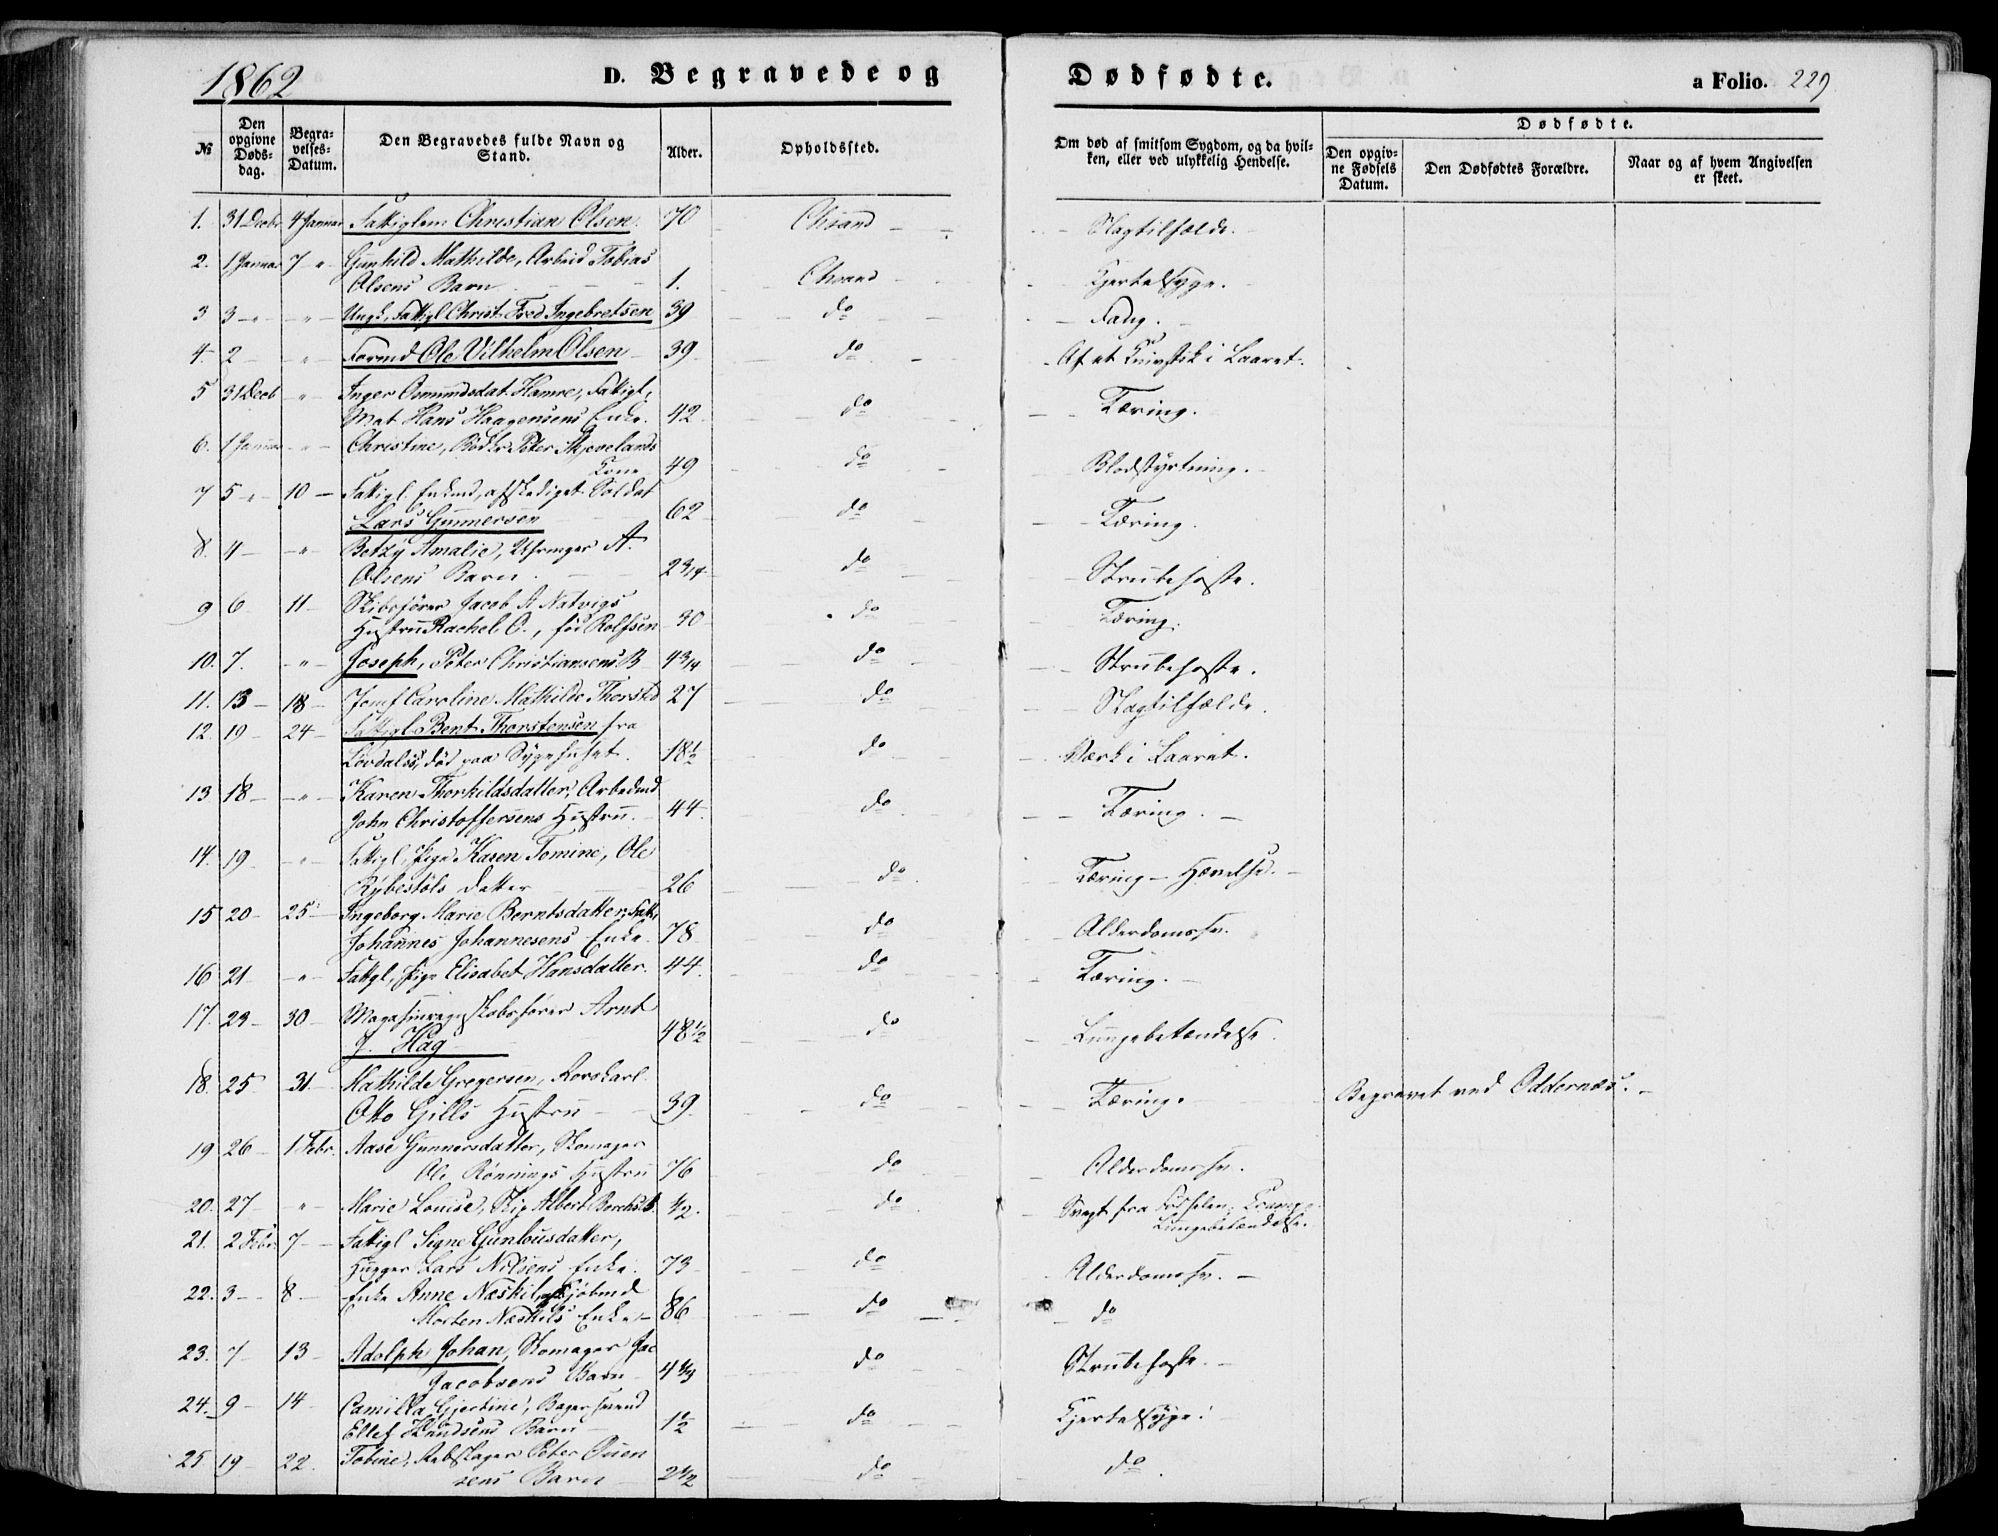 1862 D. Begravede og Dødfødte. a Folio. 229
Dødfødte.
№ Den opgivne Dødsdag. Begravelses-Datum. Den Begravedes fulde Navn og Stand. Alder. Opholdssted. Om død af smitsom Sygdom, og da hvilken, eller ved ulykkelig Hendelse. Den opgivne Fødsels Datum. Den Dødfødtes Forældre. Naar og af hvem Angivelsen er skeet.
1. 31 Decbr 4 Januar Fattiglem Christian Olsen. 70 Chsand Slagtilfælde.
2. 1 Januar 7 " Gunhild Mathilde, Arbeid Tobias
Olsens Barn 1. Chsand Kjertelsyge.
3 3 " " Ungk. Fattigl Christ. Fred Ingebretsen 39 do
4. 2 " Formd Ole Vilhelm Olsen 39 do Af et Knivstik i Laaret.
5 31 Decb " Inger Osmundsdat. Hamre, Fattigl,
Mat Hans Haagensens Enke. 42 do Tæring.
6. 1 Januar " Christine, Bødker Peter Skjevelands
Kone 49 do Blodstyrtning.
7 5 " 10 Fattigl. Enkmd, afskediget Soldat
Lars Gunnersen 62 do Tæring.
8. 4 " Betzy Amalie, A.
Olsens Barn. 2 3/4 do Strubehoste.
9 6 11 Skibsfører Jacob A Natvigs
Hustru Rachel C., fød Rolfsen 30 do Tæring.
10. 7. " Joseph, Peter Christiansens B 4 3/4 do Strubehoste.
11. 13 18 Jomf Caroline Mathilde Thorsted 27 do Slagtilfælde.
12. 19 24 Fattigl Bernt Thorstensen fra
død paa Sygehuset. 18 1/2 do Værk i Laaret.
13 18 " Karen Thorkildsdatter, Arbedmd
John Christoffersens Hustru. 44. do Tæring.
14. 19 " Fattigl, Pige Karen Tomine, Ole
Rybestøls datter 26 do Tæring - Hævelse.
15 20 25 Ingeborg Marie Berntsdatter, Fatt.
Johannes Johannesens Enke. 78 do Alderdomssv.
16 21 " Fattigl, Pige Elisabet Hansdatter. 44. do Tæring.
17. 23 30 Magasinregnskabsfører Arnt
J. Hag 48 1/2 do Lungebetændelse.
18. 25 31. Mathilde Gregersen, Rorskarl
Otto Gills Hustru 39 do Tæring. Begravet ved Oddernæs.
19 26 1 Febr. Aase Gunnersdatter, Skomager
Ole Rønnings Hustru 76 do Alderdomssv.
20. 27 " Marie Louise, Skip Albert Borchs B. 1/2. do Svagt fra Fødselen; Krampe
Lungebetændelse.
21. 2 Febr. 7 Fattigl Signe Gunlousdatter,
Hugger Lars Nilsens Enke. 73 do Alderdomssv.
22. 3 8 Enke Anne Næskil, afskjøbmd
Morten Næskils Enke 86 do do
23. 7 13 Adolph Johan, Skomager Jac
Jacobsens Barn 4 do Strubehoste.
24. 9 14 Camilla Gjertine, Bagersvend
Ellef Knudsens Barn 1 1/2 do Kjertelsyge.
25 19 22. Tobine, Rebslager Peter Ouen
sens Barn 2 1/2 do do.